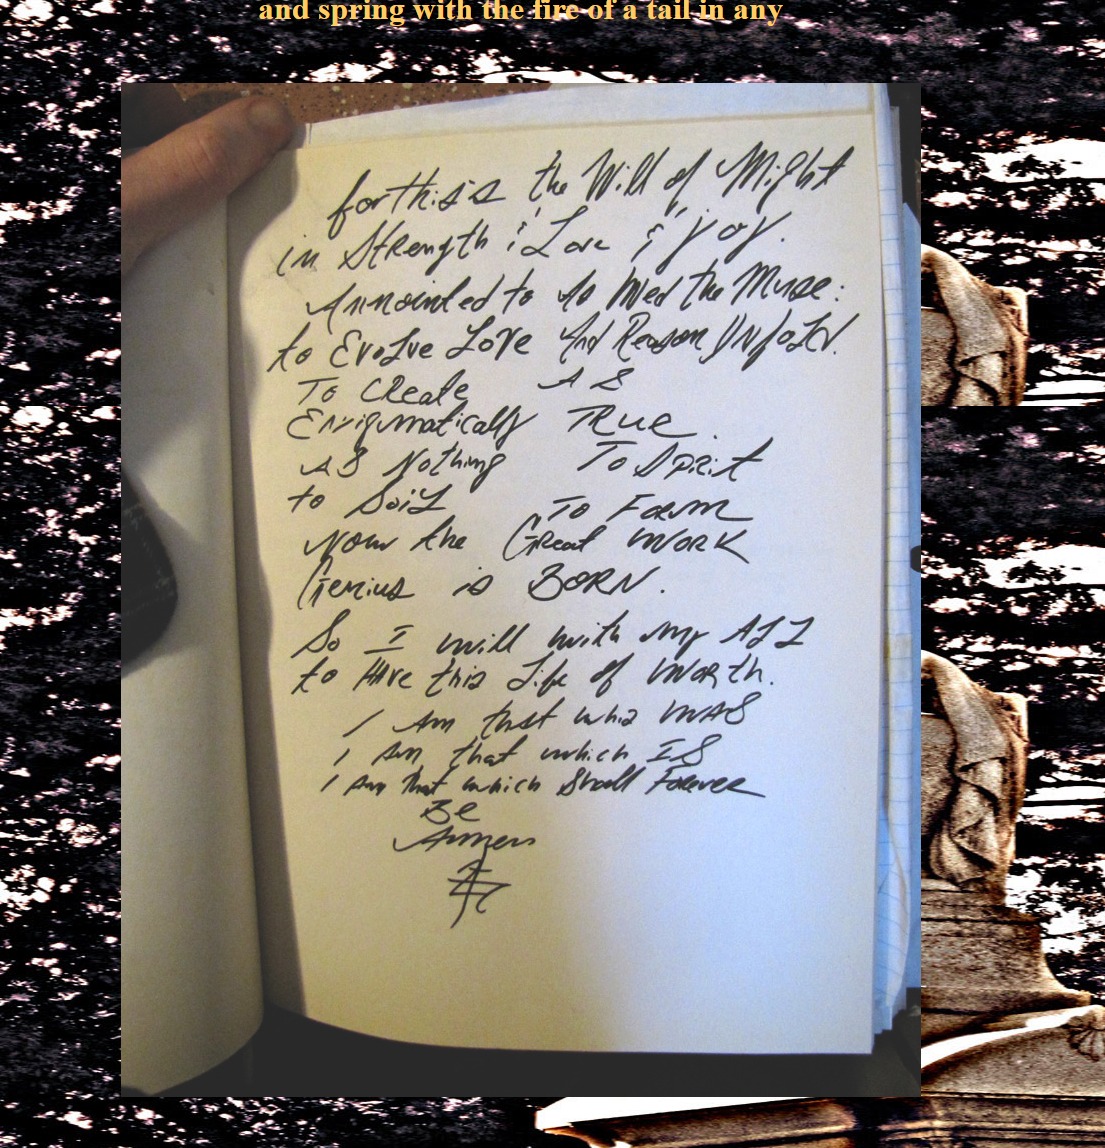 and spring with the fire of a tail in any
for this is the Will of Might
in Strength & Love & joy.
Annointed to to Wed the Muse:
to Evolve Love And Reason Unfold.
To Create AS
Enigmatically TRue.
AS Nothing To Spirit
to SoiL To Form
Now the Great WORK
Genius is BORN.
So I will with my ALL
to HAve this Life of WoRth.
I Am that whis WAS
I Am that which IS
I Am that which Shall Forever
Be
Ammen